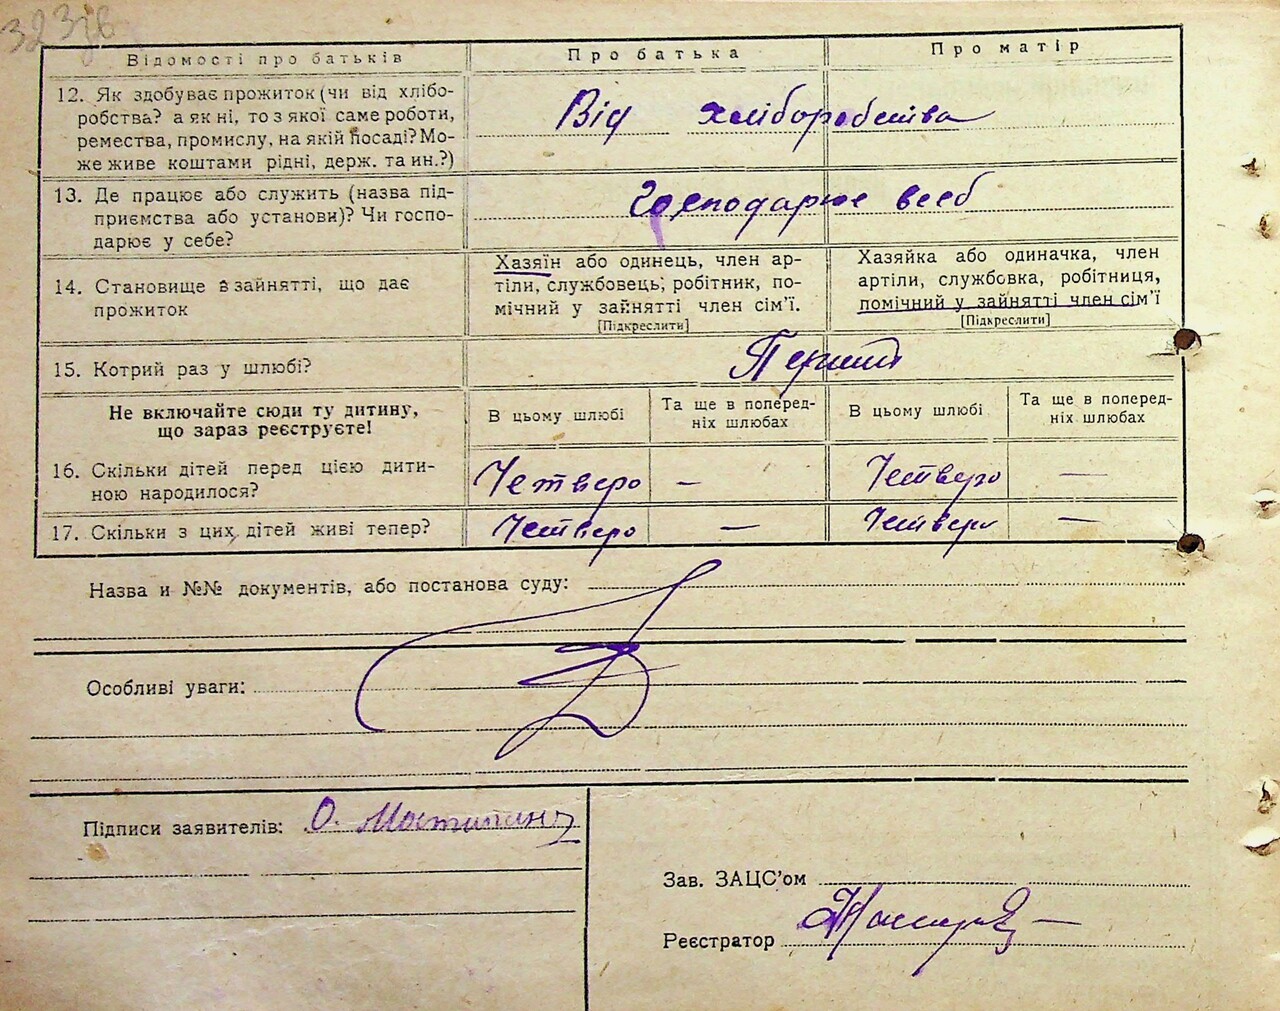 323зв
Відомості про батьків Про батька Про матір
12. Як здобуває прожиток (чи від хлібо-
робства? а як ні, то з якої саме роботи,
ремества, промислу, на якій посаді? Мо-
же живе коштами рідні, держ. та ин.?)
Від хліборобства
13. Де працює або служить (назва під-
приємства або установи)? Чи госпо-
дарює у себе?
Господарює в себ
14. Становище в зайнятті, що дає
прожиток
Хазяїн або одинець, член ар-
тіли, службовець; робітник, по-
мічний у зайнятті член сім'ї.
[Підкреслити]
Хазяйка або одиначка, член
артіли, службовка, робітниця,
помічний у зайнятті член сім'ї
[Підкреслити]
15. Котрий раз у шлюбі? Перший
Не включайте сюди ту дитину,
що зараз реєструєте!
В цьому шлюбі
Та ще в поперед-
ніх шлюбах
В цьому шлюбі
Та ще в поперед-
ніх шлюбах
16. Скільки дітей перед цією дити-
ною народилося?
Четверо — Четверо —
17. Скільки з цих дітей живі тепер? Четверо — Четверо —
Назва и №№ документів, або постанова суду:
Особливі уваги:
Підписи заявителів: О.
Зав. ЗАЦС'ом
Реєстратор